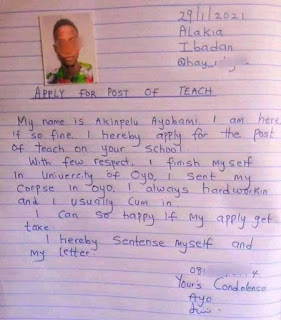 29/1/2021
Alakia
Ibadan
@bay_
APPLY FOR POST OF TEACH
My name is Akinpelu Ayobami. I am here
if so fine. I hereby apply for the post
of teach on your school
With few respect, I finish myself
In Univercity of Oyo, I sent my
Corpse in Oyo. I always hard workin
and I usually cum in
I can so happy If my apply get
take
I hereby Sentense myself and
my letter
081 .... 4
Your's Condolense
Ayo